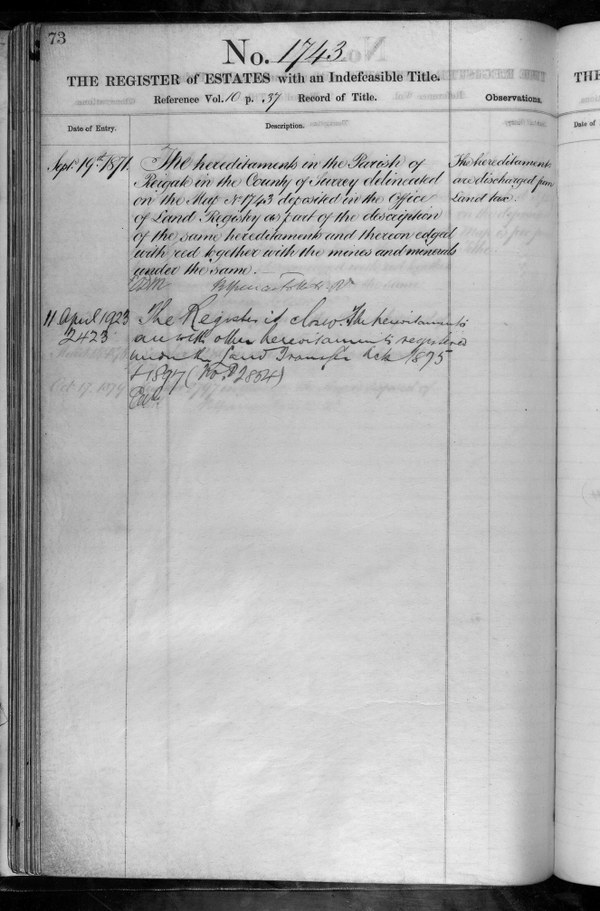 73
No. 1743
THE REGISTER of ESTATES with an Indefeasible Title.
Reference Vol. 10 p. 37 Record of Title.
Observations.
Date of Entry.
Description.
Sept 19th 1871.
The hereditaments in the Parish of
Reigate in the County of Surrey delineated
on the Map No 1743 deposited in the Office
of Land Registry as part of the description
of the same hereditaments and thereon edged
with red together with the mines and minerals
under the same.
The hereditaments
are discharged from
Land tax.
11 April 1923
2423
The Register is closed. The hereditaments
are with other hereditaments registered
under the Land Transfer Acts 1875
& 1897 (No P2854)
TH
Date of